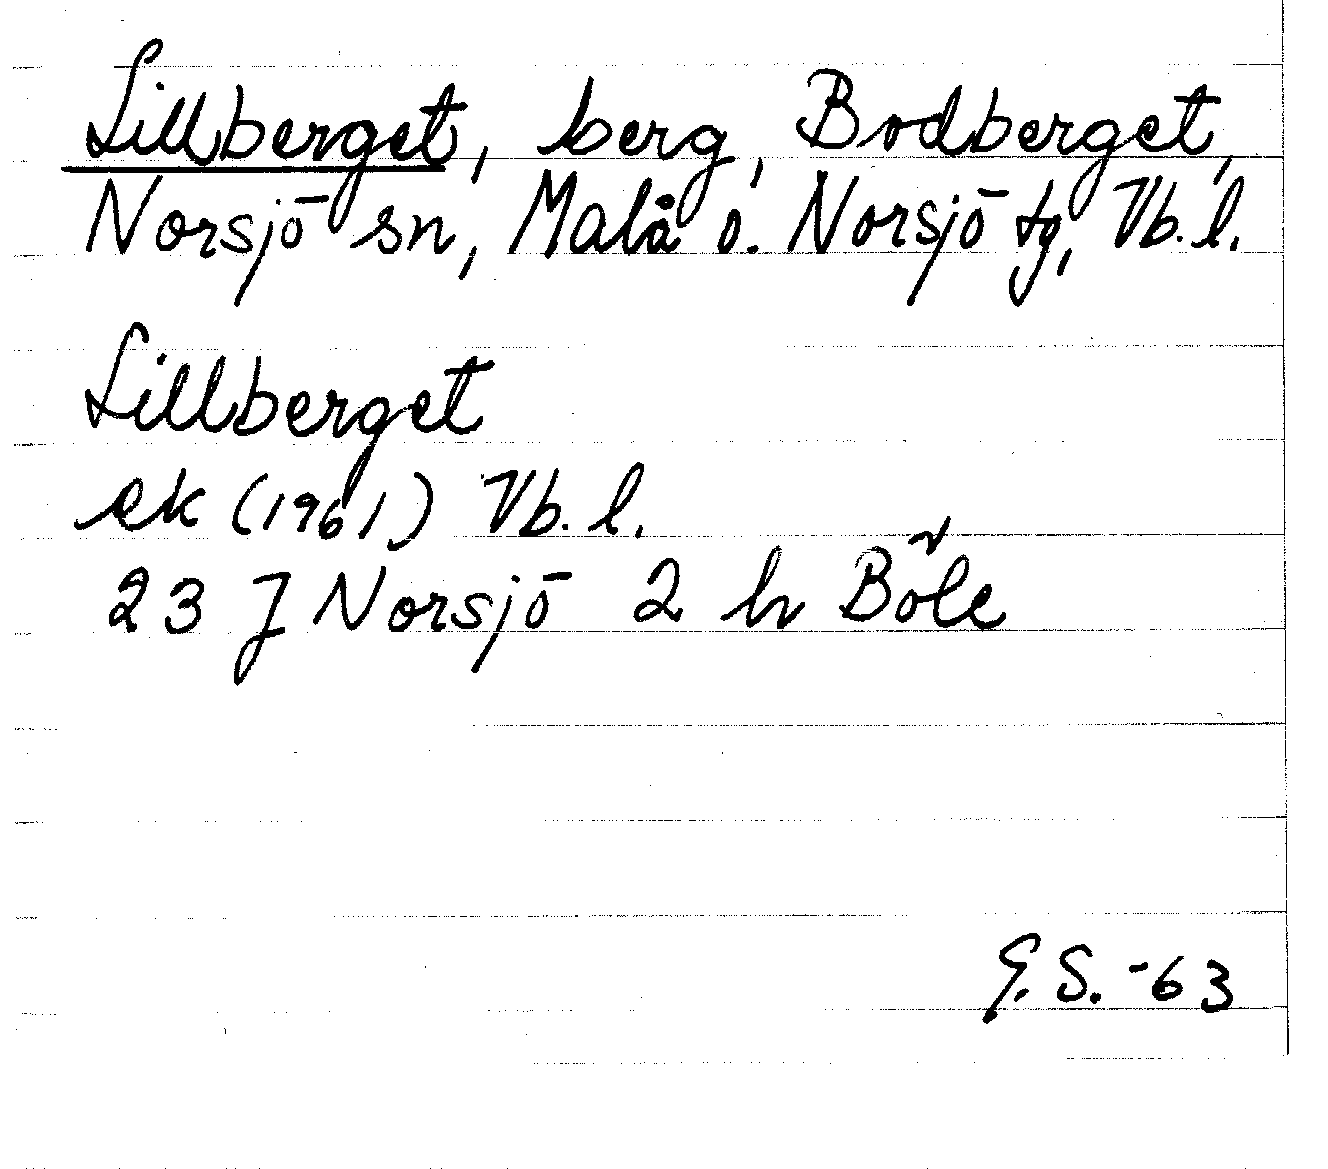 Lillberget, berg, Bodberget,
Norsjö sn, Malå o. Norsjö tg, Vb. l.
Lillberget
ek (1961) Vb. l.
23 J Norsjö 2 h Böle
G. S. -63